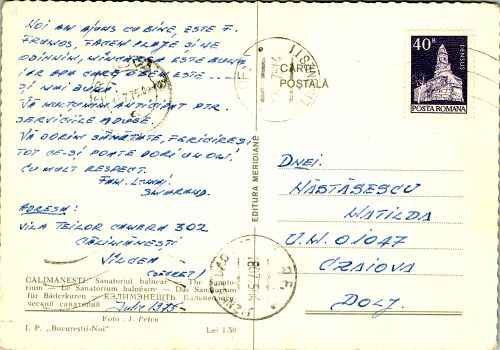 NOI AM AJUNS CU BINE, ESTE F.
FRUMOS, FACEM PLAJĂ ȘI NE
ODIHNIM, MÎNCAREA ESTE BUNĂ,
IAR APA CARE O BEM ESTE . . . .
ȘI MAI BUNĂ.
VĂ MULȚUMIM ANTICIPAT PTR.
SERVICIILE ADUSE.
VĂ DORIM SĂNĂTATE, FERICIRE ȘI
TOT CE-ȘI POATE DORI UN OM.
CU MULT RESPECT.
FAM.
ADRESA:
VILA TEILOR CAMERA 302
CĂLIMĂNEȘTI
VÎLCEA
(SECRET!)
CALIMĂNEȘTI Sanatoriul balnear — The Sanato-
rium — Le Sanatorium balnéaire — Das Sanatorium
für Bäderkuren — КЭЛИМЭНЕШТЬ. Бальнеоло-
гический санаторий
Iulie 1975
Foto : I. Petcu
I. P. „Bucureștii-Noi"
Lei 1,50
EDITURA MERIDIANE
CARTE
POȘTALĂ
40B
DENSUȘ
POSTA ROMANA
DNEI.
NĂSTĂSESCU
MATILDA
U.M. 01047
CRAIOVA
DOLJ.